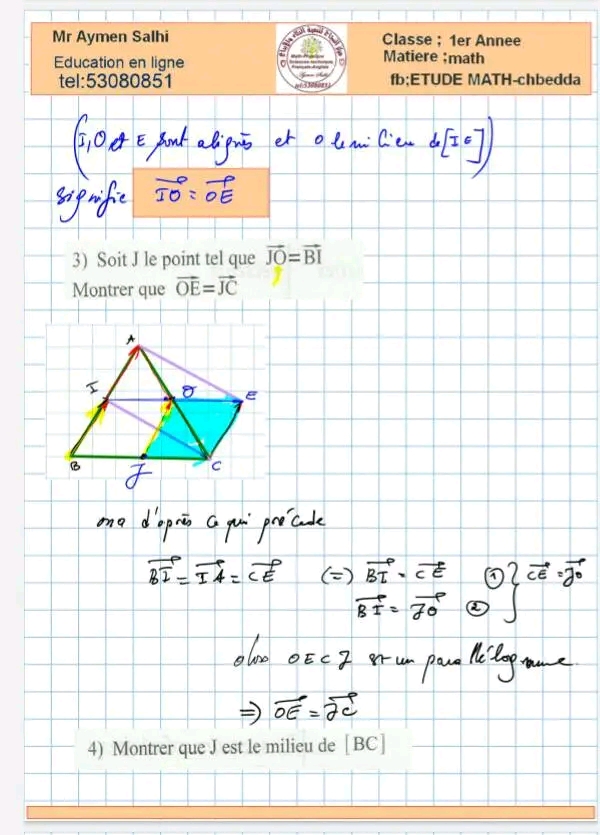 Mr Aymen Salhi
Education en ligne
tel:53080851
Classe ; 1er Annee
Matiere ;math
fb;ETUDE MATH-chbedda
(I,O et E sont alignés et O le milieu de [IE])
signifie IO = OE
3) Soit J le point tel que JO=BI
Montrer que OE=JC
A
I O E
B J C
ona d'après ce qui précède
BI = IA = CE (=) BI = CE ① } CE = JO
BI = JO ②
alors OECJ est un parallélogramme
=> OE = JC
4) Montrer que J est le milieu de [BC]